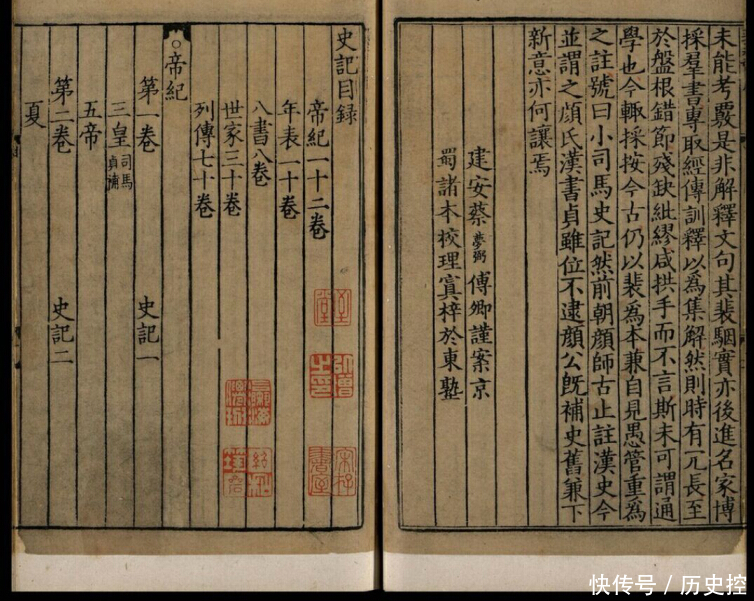 未能考覈是非解釋文句其裴駰實亦後進名家博
採羣書專取經傳訓釋以爲集解然則時有冗長至
於盤根錯節殘缺紕繆咸拱手而不言斯未可謂通
學也今輒採按今古仍以裴爲本兼自見愚管重爲
之註號曰小司馬史記然前朝顏師古止註漢史今
並謂之顏氏漢書貞雖位不逮顏公旣補史舊兼下
新意亦何讓焉
建安蔡夢弼傅卿謹案京
蜀諸本校理寘梓於東塾
史記目録
帝紀一十二卷
年表一十卷
八書八卷
世家三十卷
列傳七十卷
○帝紀
第一卷 史記一
三皇司馬貞補
五帝
第二卷 史記二
夏
快传号/历史控